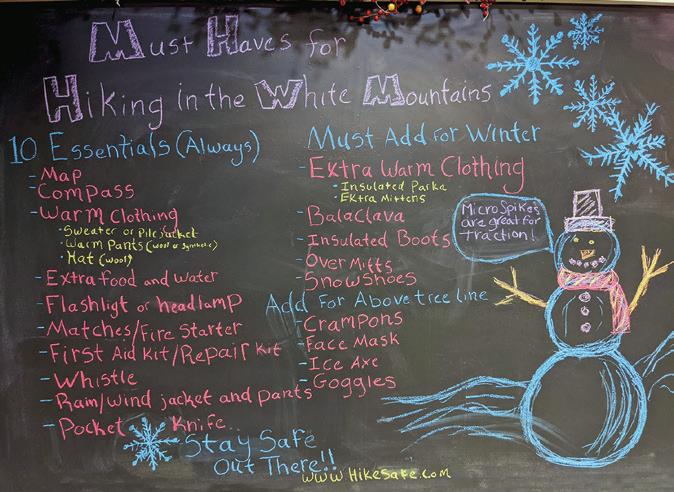 Must Haves for
Hiking in the White Mountains
10 Essentials (Always)
- Map
- Compass
- Warm Clothing
• Sweater or Pile Jacket
• Warm Pants (wool or Synthetic)
• Hat (wool)
- Extra food and water
- Flashligt or headlamp
- Matches/Fire Starter
- First Aid Kit/Repair Kit
- Whistle
- Rain/wind jacket and pants
- Pocket Knife
Must Add for Winter
- Extra Warm Clothing
• Insulated Parka
• Extra Mittens
- BalaClava
- Insulated Boots
- Over Mitts
- SnowShoes
Add For Above tree line
- Crampons
- Face Mask
- Ice Axe
- Goggles
MicroSpikes
are great for
Traction!
Stay Safe
Out There!!
www.HikeSafe.com